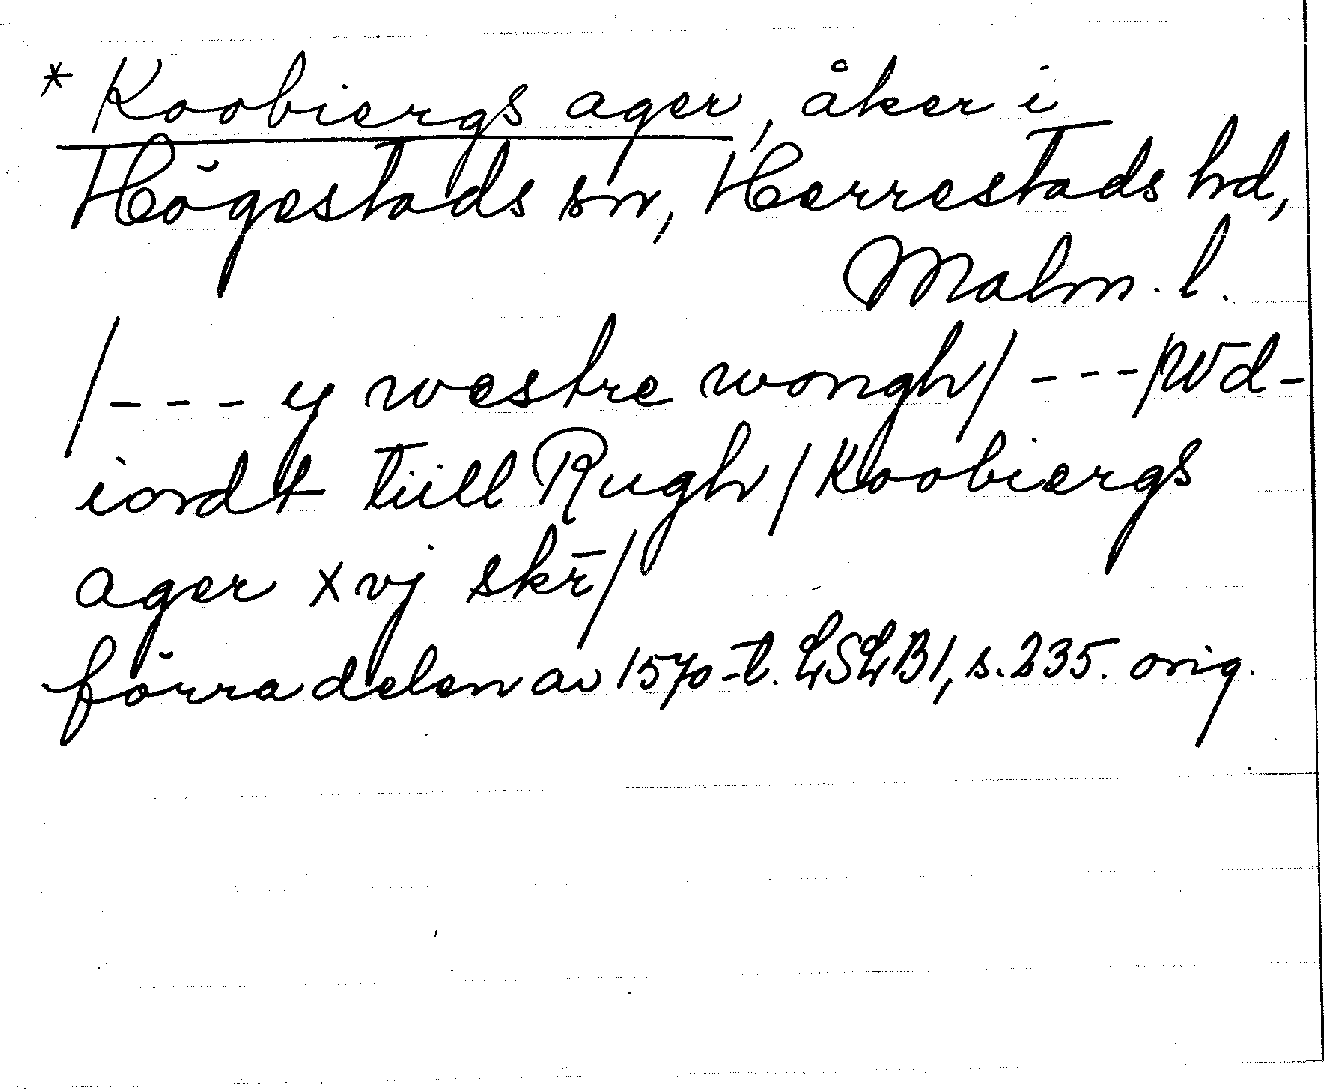 * Koobiergs ager, åker i
Högestads sn, Herrestads hd,
Malm. l.
/--- y westre wongh/ ---/Wd-
iordt tiill Rugh/Koobiergs
ager xvj skr̄/
förra delen av 1570-t. LSLB1, s. 235. orig.